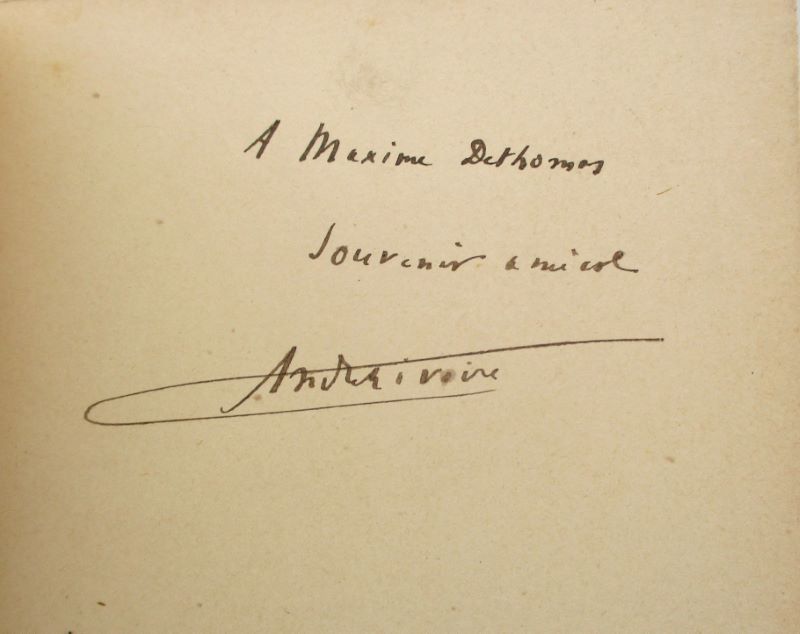 A Maxime Dethomas
Souvenir amical
André Rivoire